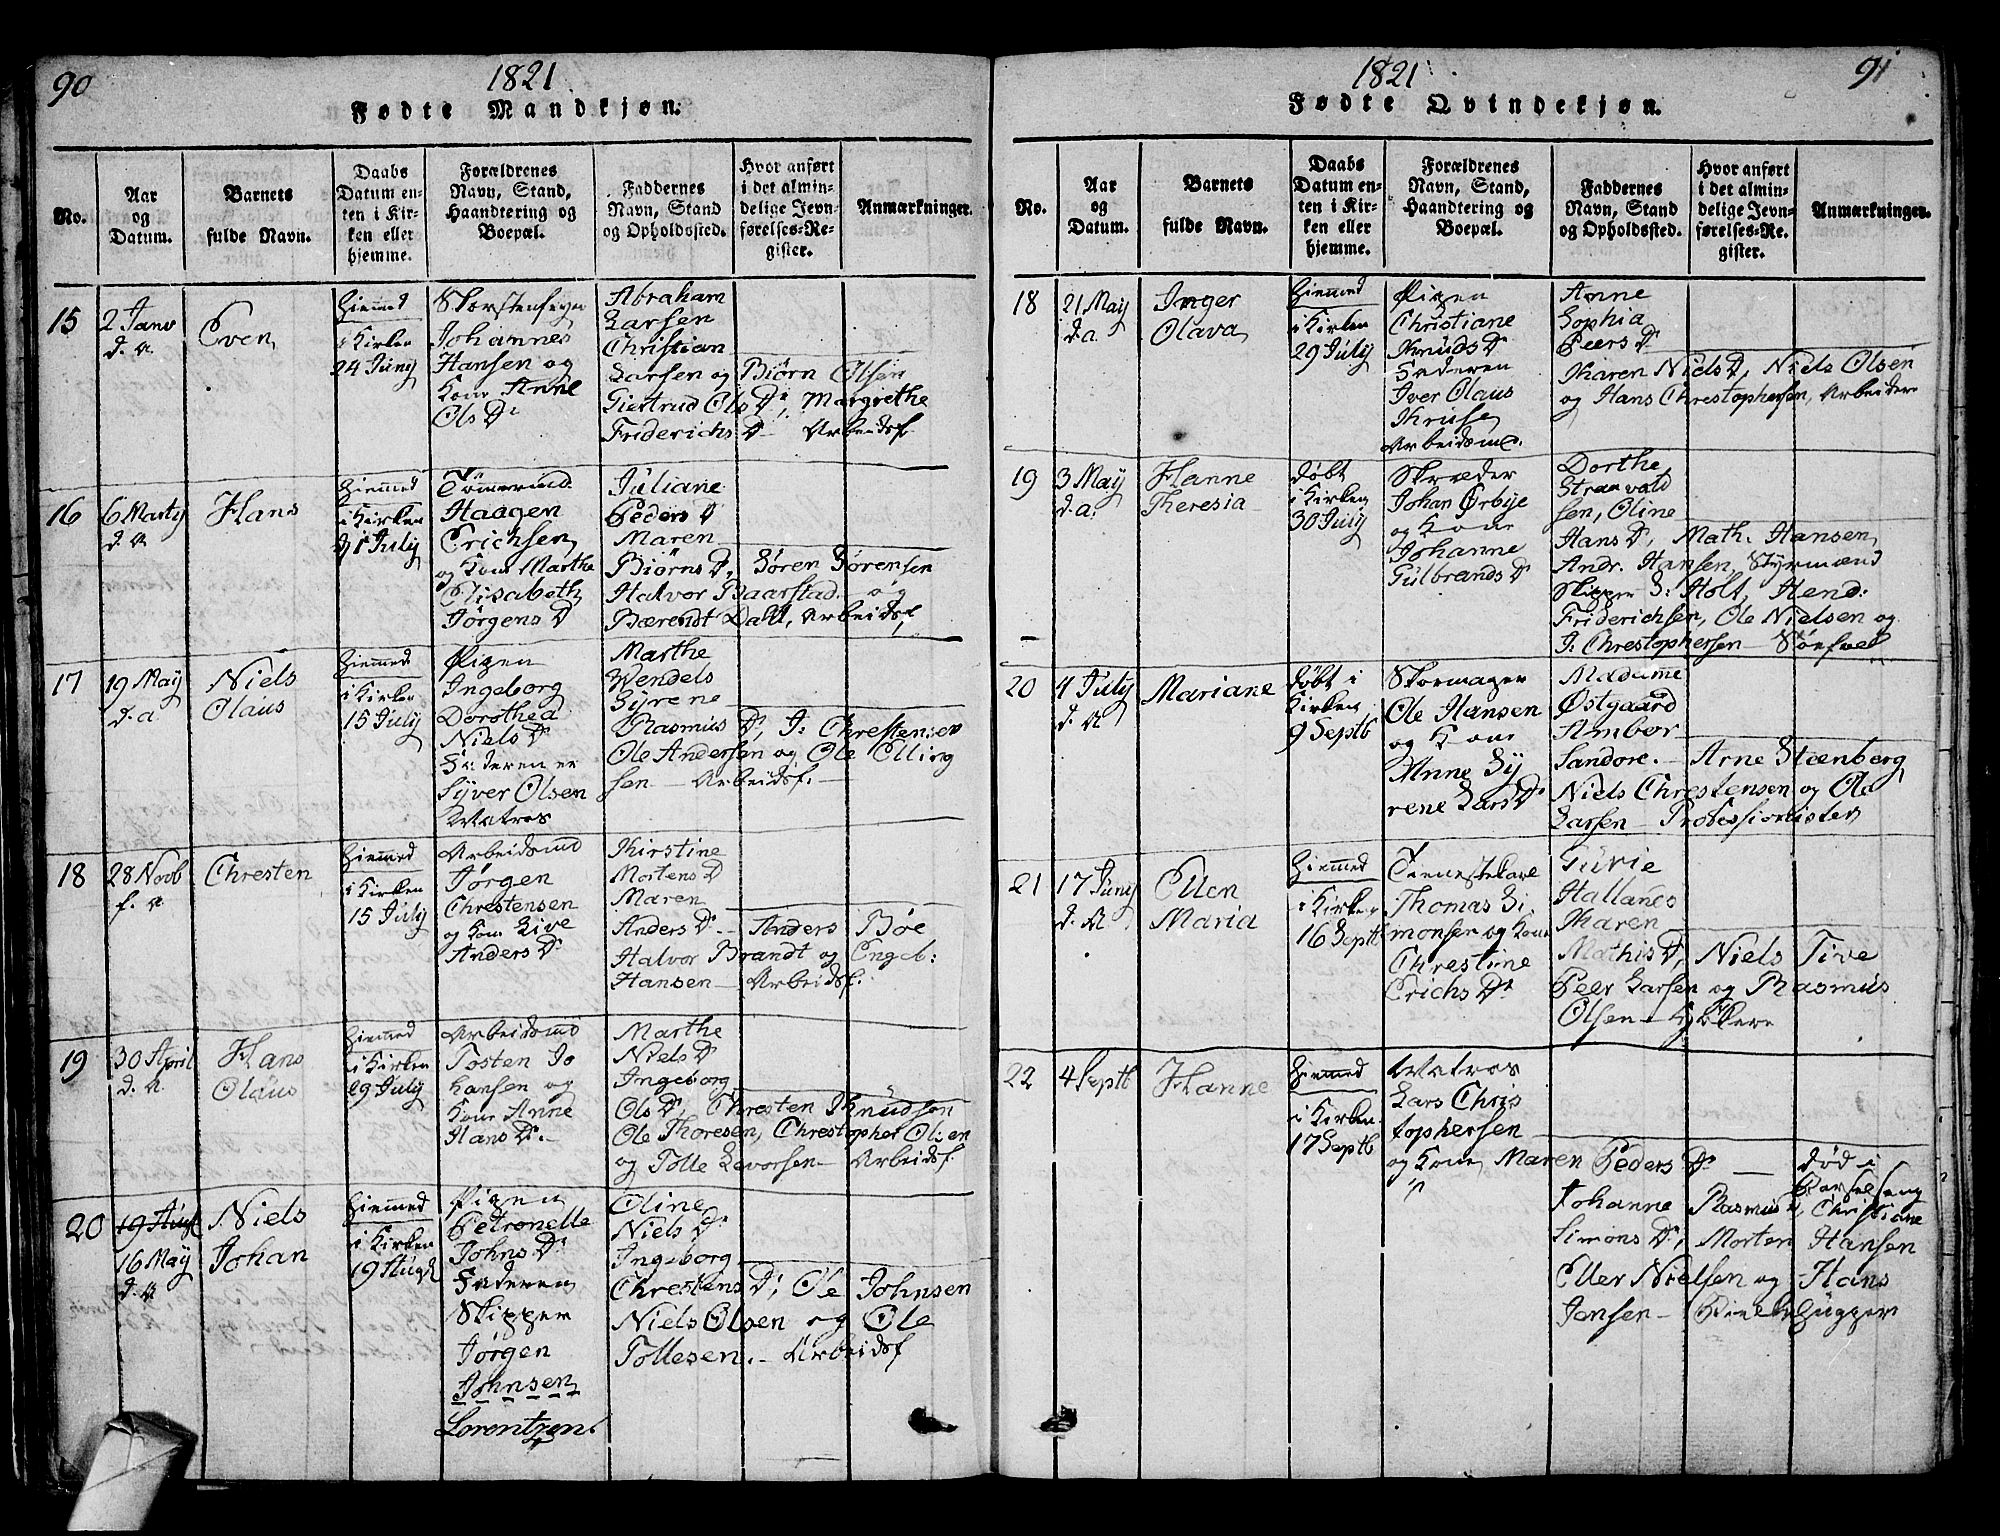 90
1821
Fødte Mandkjøn.
No.
Aar
og
Datum.
Barnets
fulde Navn.
Daabs
Datum en-
ten i Kir-
ken eller
hjemme.
Forældrenes
Navn, Stand,
Haandtering og
Boepæl.
Faddernes
Navn, Stand
og Opholdssted.
Hvor anført
i det almin-
delige Jevn-
førelses-Re-
gister.
Anmærkninger.
15
2 Janv
d. a.
Even
Hiemmed
i Kirken
24 Juny
Skorstensfeyer
Johannes
Hansen og
Kone Anne
Ols Dr
Abraham
Larsen
Christian
Larsen og Biørn Olsen
Giertrud Ols Dr, Margrethe
Friderichs D – Arbeidsf.
16
6 Marty
d. a
Hans
Hiemmed
i Kirken
1 July
Tömermd.
Haagen
Erichsen
og Kone Marthe
Elisabeth
Jørgens D
Juliane
Peders D
Maren
Biørns D, Søren Sørensen
Halvor Baarstad og
Bærendt Dahl, Arbeidsf.
17
19 May
d. a
Niels
Olaus
Hiemmed
i Kirken
15 July
Pigen
Ingeborg
Dorothea
Niels D
Faderen er
Syver Olsen
Matros
Marthe
Wendels
Syrene
Rasmus D, J: Chrestensen
Ole Andersen og Ole Elling
sen – Arbeidsf. –
18
28 Novb
f. a
Chresten
Hiemmed
i Kirken
15 July
Arbeidsmd
Jørgen
Chrestensen
og Kone Live
Anders D
Kirstine
Mortens D
Maren
Anders D. – Anders Bøe
Halvor Brandt og Engeb:
Hansen – Arbeidsf.
19
30 April
d. a.
Hans
Olaus
Hiemmed
i Kirken
29 July
Arbeidsmd
Tosten Jo
hansen og
Kone Anne
Hans D. –
Marthe
Niels D
Ingeborg
Ols D, Chresten Knudson
Ole Thoresen, Chrestopher Olsen
og Tolle Levorsen – Arbeidsf.
20
19 Augt
16 May
d. a
Niels
Johan
Hiemmed
i Kirken
19 Augt
Pigen
Petronelle
Johns D
Faderen
Skipper
Jørgen
Johnsen
Lorentzen.
Oline
Niels D
Ingeborg
Chrestens D, Ole Johnsen
Niels Olsen og Ole
Tollesen. – Arbeidsf
91
1821
Fødte Qvindekjøn.
No.
Aar
og
Datum.
Barnets
fulde Navn.
Daabs
Datum en-
ten i Kir-
ken eller
hjemme.
Forældrenes
Navn, Stand,
Haandtering og
Boepæl.
Faddernes
Navn, Stand
og Opholdssted.
Hvor anført
i det almin-
delige Jevn-
førelses-Re-
gister.
Anmærkninger.
18
21 May
d. a
Inger
Olava
Hiemmed
i Kirken
29 July
Pigen
Christiane
Knuds D
Faderen
Iver Olaus
Kruse
Arbeidsmd.
Anne
Sophia
Peers D
Karen Niels D, Niels Olsen
og Hans Chrestophersen, Arbeidere
19
3 May
d. a.
Hanne
Theresia
Døbt
i Kirken
30 July
Skræder
Johan Ørbye
og Kone
Johanne
Gulbrands D
Dorthe
Stranvold
sen, Oline
Hans D, Math. Hansen
Andr. Hansen, Styrmænd
Skipper S: Holt, Hend:
Friderichsen, Ole Nielsen og
J: Chrestophersen – Søefoel
20
4 July
d. a
Mariane
Døbt i
Kirken
9 Septb
Skomager
Ole Hansen
og Kone
Anne Sy
rene Lars D
Madame
Østgaard
Ambor
Sandore. – Arne Steenberg,
Niels Chrestensen og Ole
Larsen – Professionister
21
17 Juny
d. a
Ellen
Maria
Hiemmed
i Kirken
16 Septb
Tienestekarl
Thomas Si
monsen og Kone
Chrestine
Erichs D
Gurie
Hallanes
Karen
Mathis D, Niels Tive
Peer Larsen og Rasmus
Olsen –
22
4 Septb
Hanne
Hiemmed
i Kirken
17 Septb
Matros
Lars Chris
tophersen
og Kone Maren Peders D –
død i
Barselseng
Johanne Rasmus D, Christiane
Simons D, Morten Hansen
Eller Nielsen og Hans
Jansen –